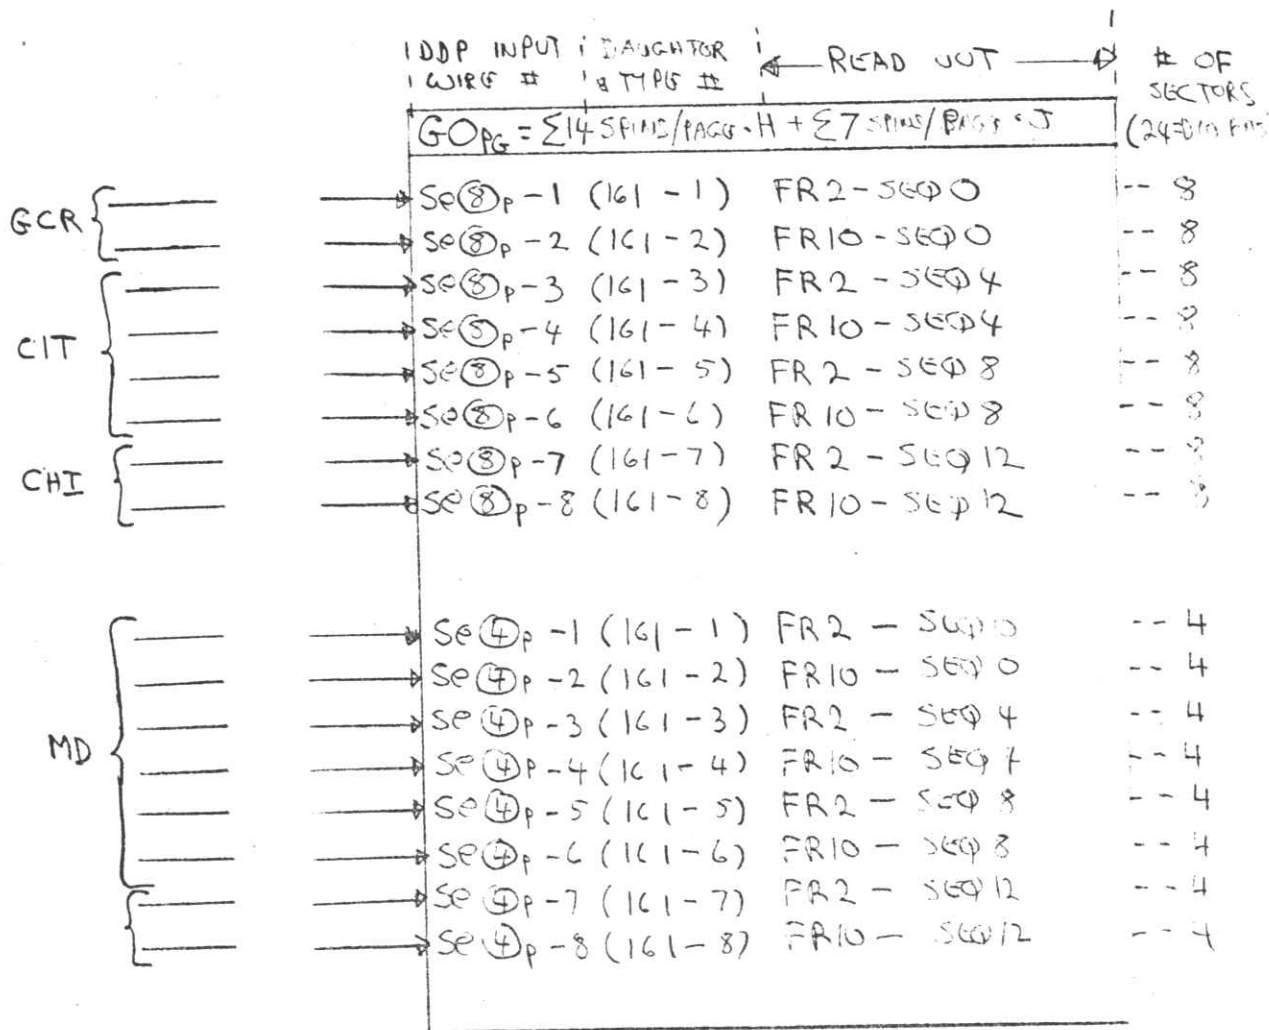 DDP INPUT DAUGHTOR READ OUT # OF
WIRE # & TYPE # SECTORS
GO PG = Σ14 SPINS/PAGE · H + Σ7 SPINS/PAGE · J
Se⑧p-1 (161-1) FR2-SEQ0 -- 8
GCR
Se⑧p-2 (161-2) FR10-SEQ0 -- 8
Se⑧p-3 (161-3) FR2-SEQ4 -- 8
Se⑧p-4 (161-4) FR10-SEQ4 -- 8
CIT
Se⑧p-5 (161-5) FR2-SEQ8 -- 8
Se⑧p-6 (161-6) FR10-SEQ8 -- 8
Se⑧p-7 (161-7) FR2-SEQ12 -- 8
CHI
Se⑧p-8 (161-8) FR10-SEQ12 -- 8
Se④p-1 (161-1) FR2-SEQ0 -- 4
Se④p-2 (161-2) FR10-SEQ0 -- 4
Se④p-3 (161-3) FR2-SEQ4 -- 4
MD
Se④p-4 (161-4) FR10-SEQ4 -- 4
Se④p-5 (161-5) FR2-SEQ8 -- 4
Se④p-6 (161-6) FR10-SEQ8 -- 4
Se④p-7 (161-7) FR2-SEQ12 -- 4
Se④p-8 (161-8) FR10-SEQ12 -- 4